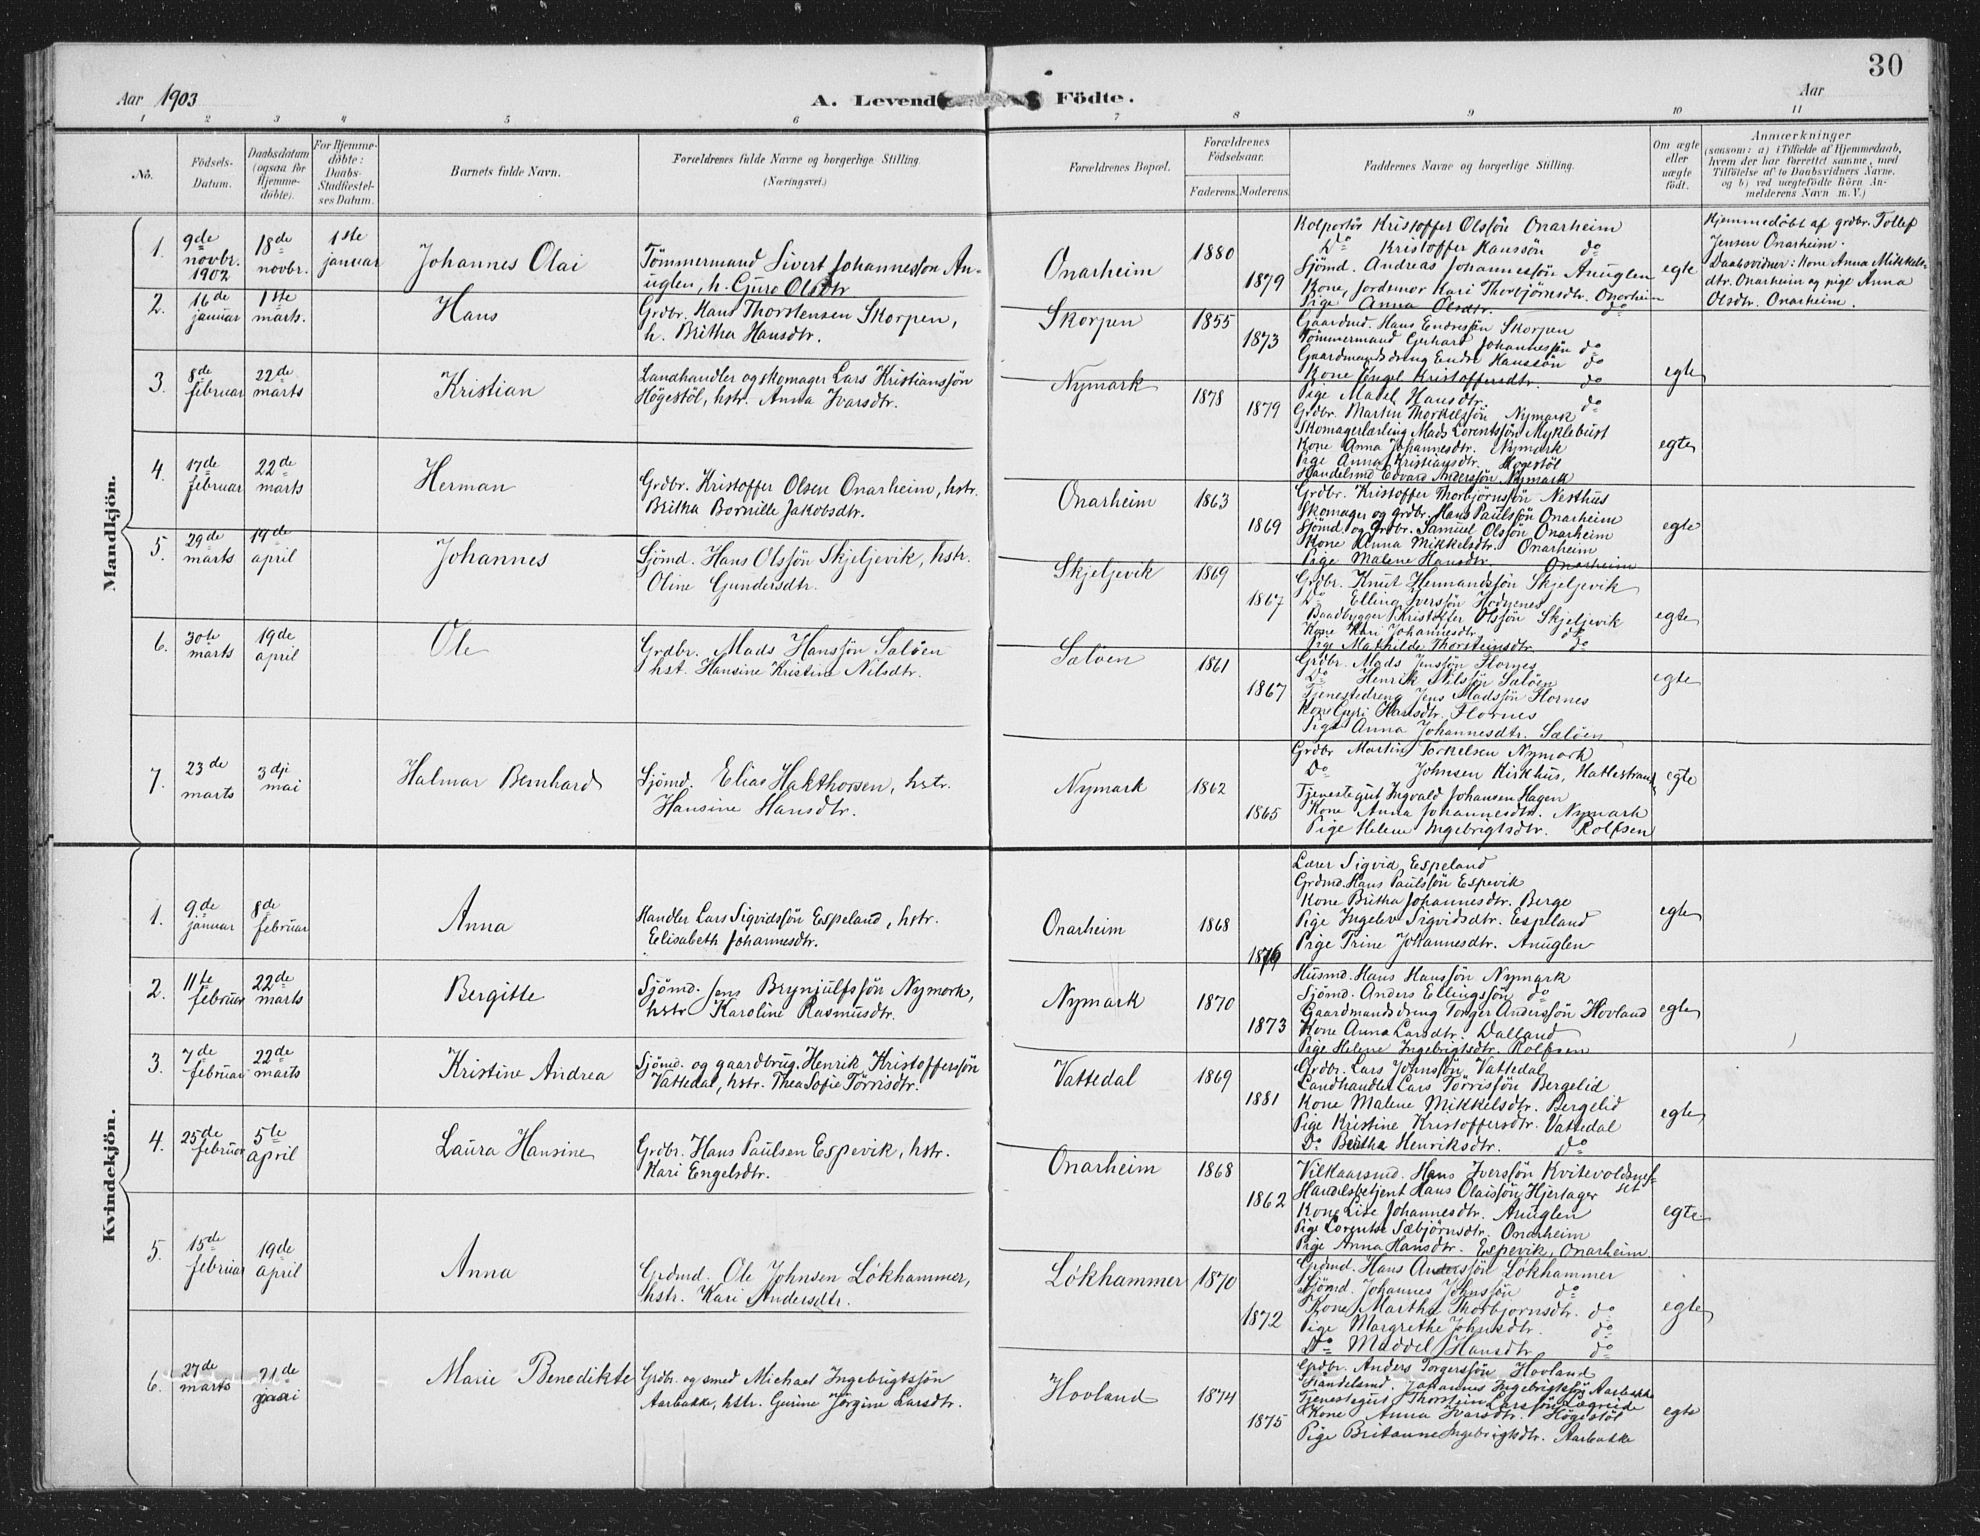 30
Aar 1903
A. Levende Födte.
Aar
1 2 3 4 5 6 7 8 9 10 11
No.
Födsels-Datum.
Daabsdatum (ogsaa for Hjemmedøbte).
For Hjemmedøbte: Daabs-Stadfestelses Datum.
Barnets fulde Navn.
Forældrenes fulde Navne og borgerlige Stilling.
(Næringsvei.)
Forældrenes Bopæl.
Forældrenes Födselsaar.
Faderens. Moderens.
Faddernes Navne og borgerlige Stilling.
Om ægte eller uægte født.
Anmærkninger
(saasom: a) i Tilfælde af Hjemmedaab,
hvem der har forrettet samme, med
Tilføielse af to Daabsvidners Navne,
og b) ved uægtefødte Børn Anmelderens Navn m. V.)
Mandkjön.
1. 9de novbr. 1902 18de novbr. 1ste januar Johannes Olai
Tömmermand Sivert Johannesson Anuglen, h. Guro Olsdtr
Onarheim 1880 1879
Kolportör Kristoffer Olssön Onarheim
Do Kristoffer Hanssön do
Sjömd. Andreas Johannessön Anuglen
Kone, Jordemor Kari Thorbjörnsdtr. Onarheim
Pige Anna Olsdtr. do
egte
Hjemmedöbt af grdbr. Tollef
Jensen Onarheim.
Daabsvidner: Kone Anna Mikkels-
dtr. Onarheim og pige Anna
Olsdtr. Onarheim.
2. 16de januar 1ste marts. Hans
Grdbr. Hans Thorstensen Skorpen,
h. Britha Hansdtr.
Skorpen 1855 1873
Gaardmd. Hans Endressön Skorpen
Tömmermand Gerhard Johannessön do
Gaardmandsdreng Endre Hanssön do
Kone Engel Kristoffersdtr. do
Pige Madel Hansdtr. do
egte
3. 8de februar 22de marts Kristian
Landhandler og skomager Lars Kristianssön
Högestöl, hstr. Anna Ivarsdtr.
Nymark 1878 1879
Grdbr. Martin Thorkelssön Nymark
Skomagerlærling Mads Lorentssön Myklebust
Kone Anna Johannesdtr. Nymark
Pige Anna Kristiansdtr. Högestöl
Handelsmd Edvard Anderssön Nymark
egte
4. 17de februar 22de marts Herman
Grdbr. Kristoffer Olsen Onarheim, hstr.
Britha Bornille Jakobsdtr.
Onarheim 1863 1869
Grdbr. Kristoffer Thorbjörnssön Nesthus
Skomager og grdbr. Hans Paulssön Onarheim
Sjömd og Grdbr. Samuel Olssön Onarheim
Kone Anna Mikkelsdtr. Onarheim
Pige Malene Hansdtr. Onarheim
egte
5. 29de marts 19de april Johannes
Sjömd. Hans Olssön Skjeljevik, hstr.
Oline Gundersdtr.
Skjeljevik 1869 1867
Grdbr. Knut Hermandssön Skjeljevik
Do Elling Iverssön Hodnenes
Baadbygger Kristoffer Olssön Skjeljevik
Kone Kari Johannesdtr. do
Pige Mathilde Thorsteinsdtr. do
egte
6. 30te marts 19de april Ole
Grdbr. Mads Hanssön Salöen
hst. Hansine Kristine Nilsdtr.
Salöen 1861 1867
Grdbr. Mads Jenssön Flornes
Do Henrik Nilssön Salöen
Tjenestedreng Jens Madssön Flornes
Kone Guri Hansdtr. Flornes
Pige Anna Johannesdtr. Salöen
egte
7. 23de marts 3dji mai Halmar Bernhard
Sjömd. Elias Hakthorsen, hstr.
Hansine Hansdtr.
Nymark 1862 1865
Grdbr Martin Torkelsen Nymark
Do Johnsen Kirkhus, Hattestrand
Tjenestegut Ingvald Johansen Hagen
Kone Anna Johannesdtr. Nymark
Pige Helene Ingebrigtsdtr. Rolfsen
egte
Kvindekjön.
1. 9de januar 8de februar Anna
Handler Lars Sigvidssön Espeland, hstr.
Elisabeth Johannesdtr.
Onarheim 1868
Lærer Sigvid Espeland
Grdmd. Hans Paulssön Espevik
Kone Britha Johannesdtr. Berge
Pige Ingelev Sigvidsdtr. Espeland
Pige Trine Johannesdtr. Anuglen
egte
2. 11te februar 22de marts Bergitte
Sjömd. Jens Brynjulfssön Nymark,
hstr Karoline Rasmusdtr.
Nymark 1870 1873
Husmd. Hans Hanssön Nymark
Sjömd. Anders Ellingssön do
Gaardmandsdreng Torger Anderssön Hovland
Kone Anna Larsdtr. Dalland
Pige Helene Ingebrigtsdtr. Rolfsen
egte
3. 7de februar 22de marts Kristine Andrea
Sjömd. og gaardbrug. Henrik Kristofferssön
Vattedal, hstr. Thea Sofie Törrisdtr.
Vattedal 1869 1881
Grdbr. Lars Johnssön Vattedal
Landhandler Lars Törrissön Bergelid
Kone Malene Mikkelsdtr. Bergelid
Pige Kristine Kristoffersdtr. Vattedal
Do Bertha Henriksdtr. do
egte
4. 25de februar 5te april Laura Hansine
Grdbr. Hans Paulsen Espevik, hstr.
Kari Engelsdtr.
Onarheim 1868 1862
Vilkaarsmd. Hans Iverssön Kvitevoldsnes-
Handelsbetjent Hans Olaissön Hjertager
Kone Lise Johannesdtr. Anuglen
Pige Lorentse Sæbjörnsdtr. Onarheim
Pige Anna Hansdtr. Espevik, Onarheim
egte
5. 15de februar 19de april Anna
Grdmd. Ole Johnsen Lökhammer,
hstr. Kari Andersdtr.
Lökhammer 1870 1872
Grdmd. Hans Anderssön Lökhammer
Sjömd. Johannes Johnssön do
Kone Martha Thorbjornsdtr. do
Pige Margrethe Johnsdtr. do
Do Maddel Hansdtr. do
egte
6. 27de marts 21de Marie Benedikte
Grdbr. og smed Michael Ingebrigtssön
Aarbakke, hstr. Gurine Jörgine Larsdtr.
Hovland 1874 1875
Grdbr. Anders Torgerssön Hovland
Handelsmd. Johannes Ingebrigtssön Aarbakke
Tjenestegut Thorstein Larssön Lægreide
Kone Anna Ivarsdtr. Högestöl
Pige Britanne Ingebrigtsdtr. Aarbakke
egte